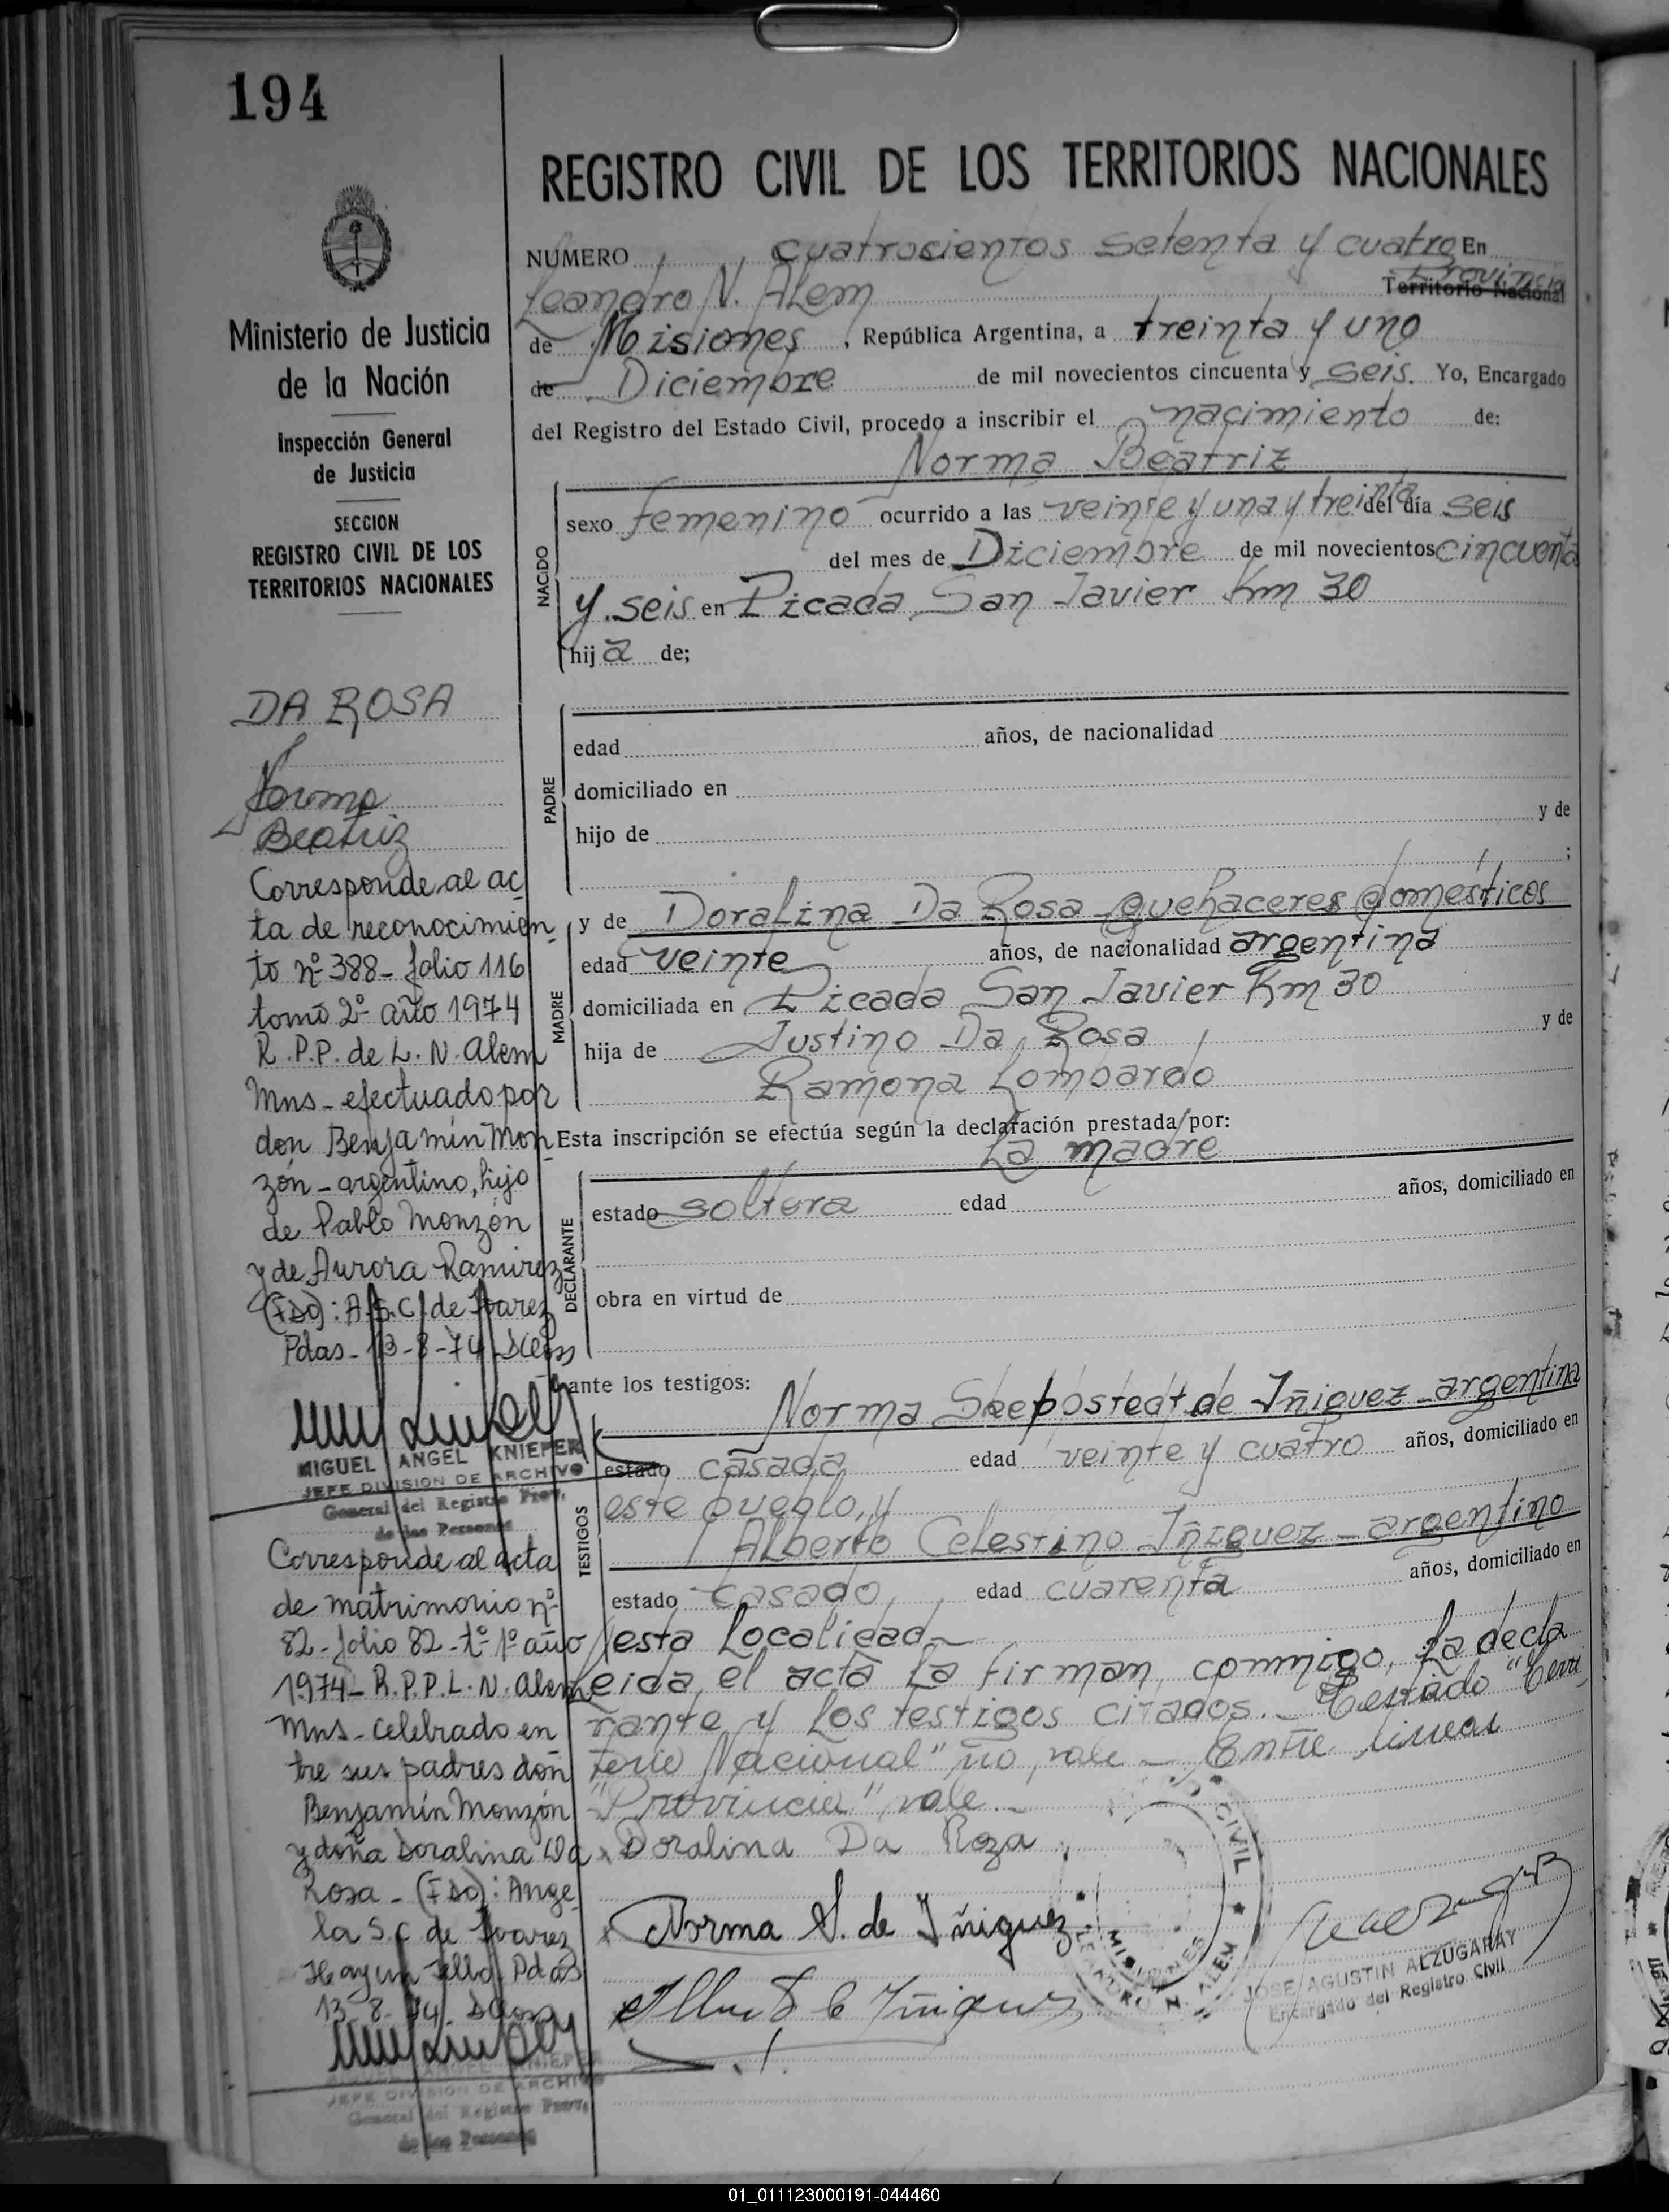 194
Ministerio de Justicia
de la Nación
Inspección General
de Justicia
SECCION
REGISTRO CIVIL DE LOS
TERRITORIOS NACIONALES
DA ROSA
Norma
Beatriz
Corresponde al ac
ta de reconocimien
to nº 388- folio 116
tomo 2º año 1974
R.P.P. de L. N. Alem
Mns- efectuado por
don Benjamín Mon
zón - argentino, hijo
de Pablo Monzón
y de Aurora Ramirez
(Fdo): A.S.C. de Soarez
Pdas- 13-8-74
MIGUEL ANGEL KNIEPER
JEFE DIVISION DE ARCHIVO
General del Registro Prov.
de las Personas
Corresponde al acta
de matrimonio nº
82- folio 82- tº 1º año
1974- R.P.P. L. N. Alem
Mns- celebrado en
tre sus padres don
Benjamín Monzón
y doña Doralina Da
Rosa - (Fdo): Ange
la S.C. de Soarez
Hay un sello Pdas
13-8-74
MIGUEL ANGEL KNIEPER
JEFE DIVISION DE ARCHIVO
General del Registro Prov.
de las Personas
REGISTRO CIVIL DE LOS TERRITORIOS NACIONALES
NUMERO cuatrocientos setenta y cuatro En
Provincia
Leandro N. Alem Territorio Nacional
de Misiones, República Argentina, a treinta y uno
de Diciembre de mil novecientos cincuenta y seis. Yo, Encargado
del Registro del Estado Civil, procedo a inscribir el nacimiento de:
Norma Beatriz
NACIDO
sexo femenino ocurrido a las veinte y una y treinta del día seis
del mes de Diciembre de mil novecientos cincuenta
y seis en Picada San Javier Km 30
hija de;
PADRE
edad años, de nacionalidad
domiciliado en
hijo de y de
;
MADRE
y de Doralina Da Rosa quehaceres domésticos
edad veinte años, de nacionalidad argentina
domiciliada en Picada San Javier Km 30
hija de Justino Da Rosa y de
Ramona Lombardo
Esta inscripción se efectúa según la declaración prestada por:
La madre
DECLARANTE
estado soltera edad años, domiciliado en
obra en virtud de
ante los testigos:
Norma de Iñiguez - argentina
TESTIGOS
estado casada edad veinte y cuatro años, domiciliado en
este pueblo, y
Alberto Celestino Iñiguez - argentino
estado casado, edad cuarenta años, domiciliado en
esta Localidad.
Leida el acta la firman conmigo, La decla
rante y Los testigos citados.- Testado "Terri
torio Nacional" no vale - Entre lineas
"Provincia" vale.-
x Doralina Da Roza
x Norma S. de Iñiguez
CIVIL
MISIONES
LEANDRO N. ALEM
JOSE AGUSTIN ALZUGARAY
Encargado del Registro Civil
01_011123000191-044460